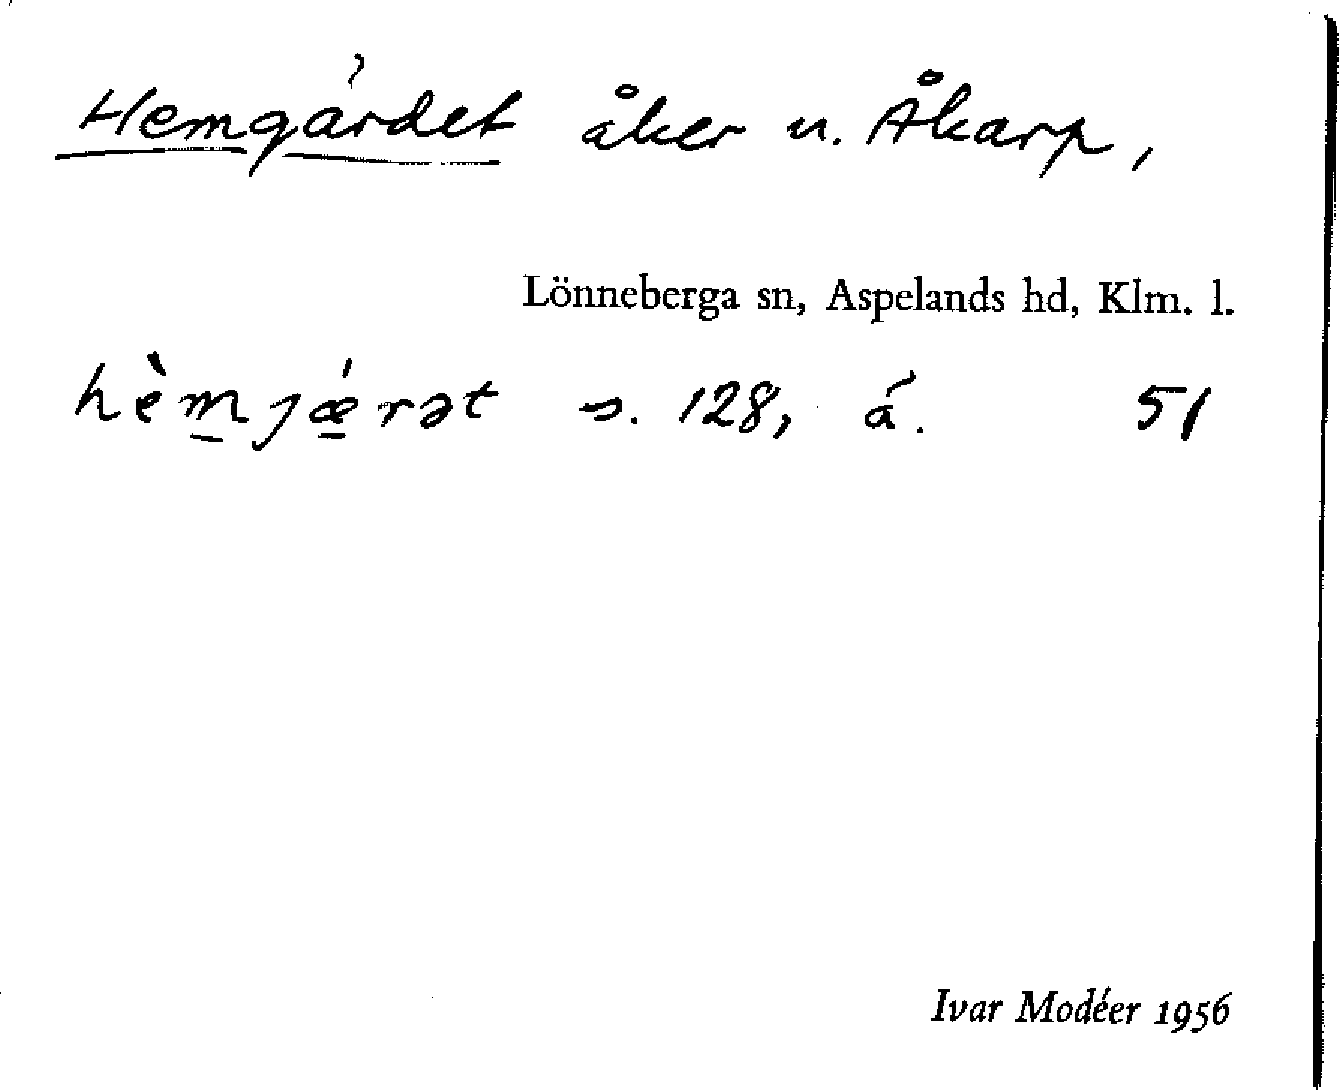 Hemgärdet åker u. Åkarp,
Lönneberga sn, Aspelands hd, Klm. l.
hèmjǽrət s. 128, á. 51
Ivar Modéer 1956